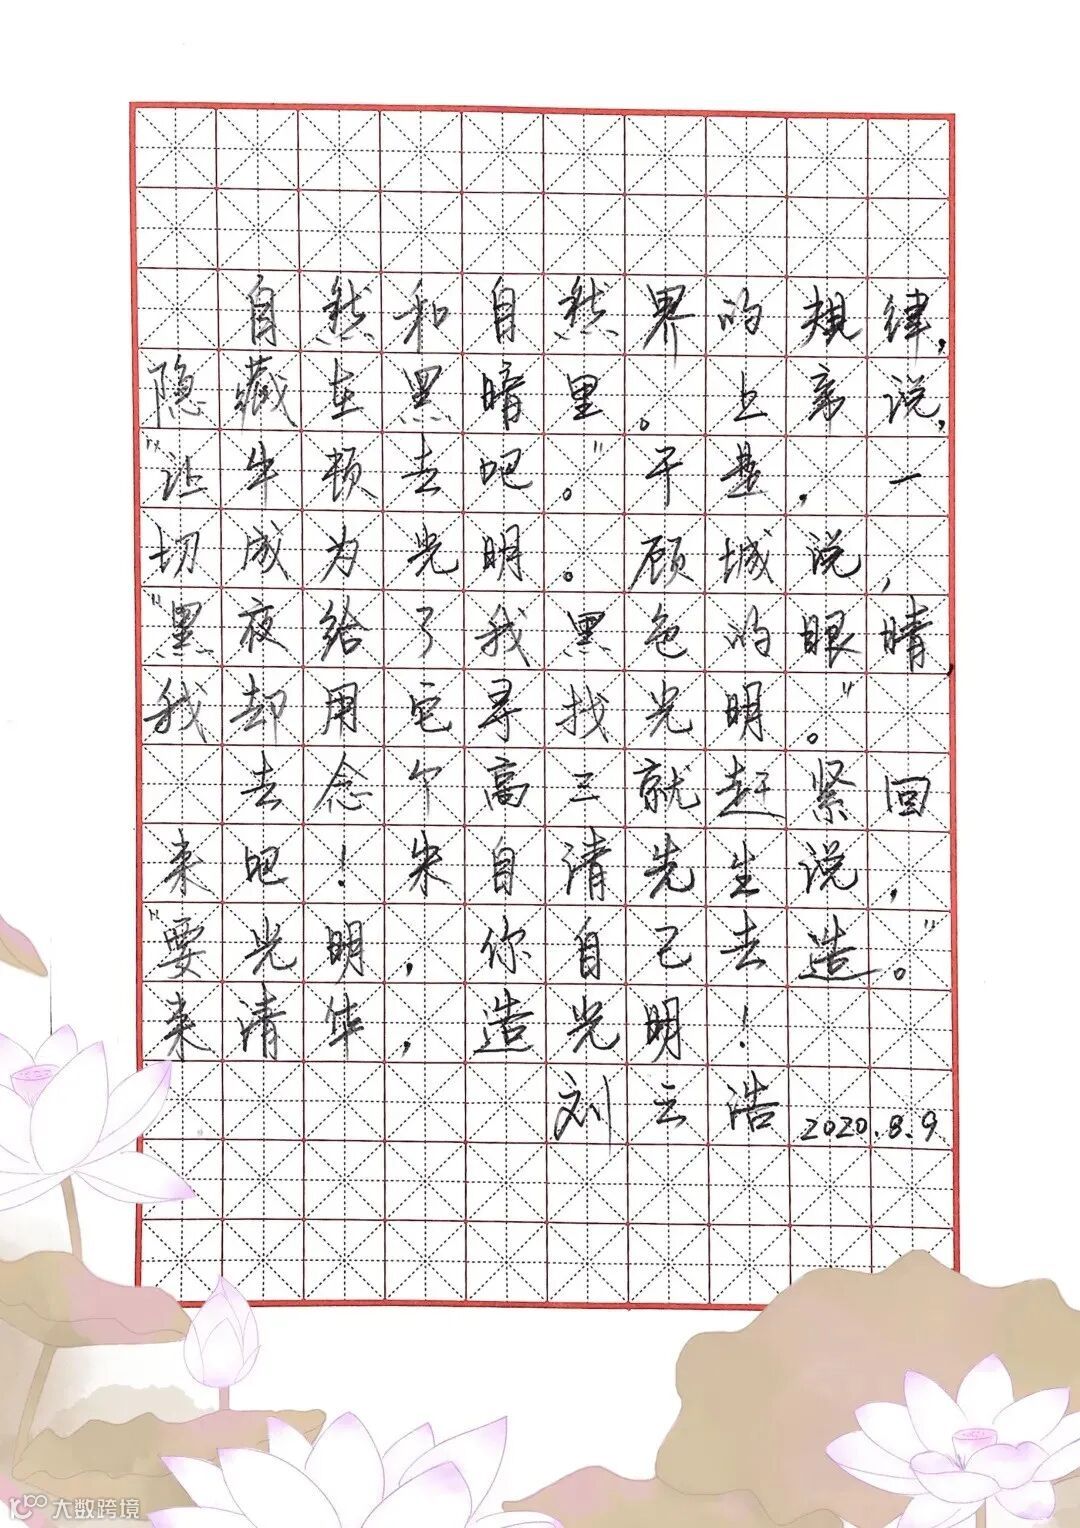 自然和自然界的规律,
隐藏在黑暗里。上帝说,
"让牛顿去吧。"于是,一
切成为光明。顾城说,
"黑夜给了我黑色的眼睛,
我却用它寻找光明。"
去念个高三就赶紧回
来吧!朱自清先生说,
"要光明,你自己去造。"
来清华,造光明!
刘云浩 2020.8.9
大数跨境